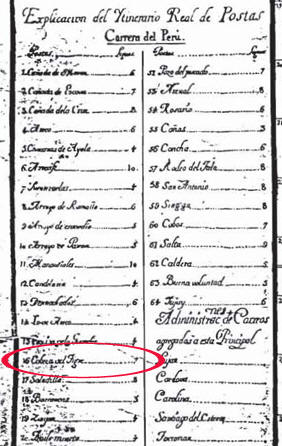 Explicacion del Itinerario Real de Postas
Carrera del Perú.
Postas. Leguas
1. Cañada de Moron 6
2. Cañada de Escovar 7
3. Cañada dela Cruz 8
4. Areco 6
5. Chacras de Ayala 4
6. Arrecife 10
7. 4
8. Arroyo de Ramallo 6
9. Arroyo de enmedio 5
10. Arroyo de Pavon 5
11. Manantiales
12. Candelaria 4
13. Desmochados 6
14. 4
15.
16 Cabeza del Tigre 7
17. Saladillo 5
18. Barrancas 5
19. Zanjon 4
20. Frayle muerto
Postas Leguas
52 Pozo del pescado 7
53. Arenal 8
54. Rosario 6
55 Cañas 3
56 Concha 6
57. 8
58 San Antonio 8
59. 8
60 Cobos 7
61 Salta 9
62 Caldera 5
63 Buena voluntad
64. Jujuy 6
Administrac.s de Caxeros
agregadas a esta Principal
Luxan
Cordova
Carolina
Santiago del Estero
Tucuman